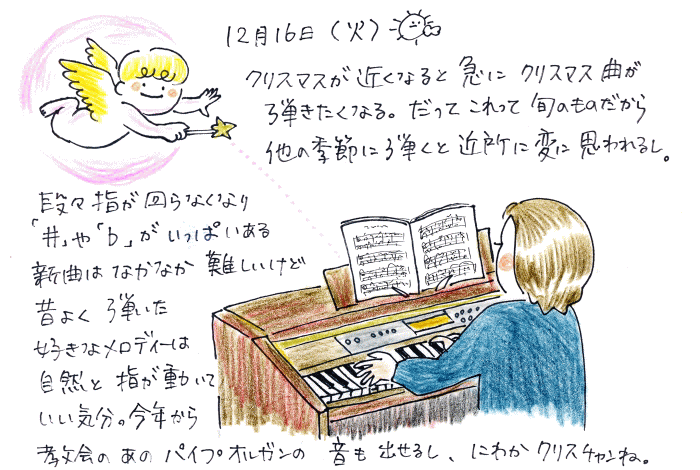 12月16日（火）
クリスマスが近くなると急にクリスマス曲が
弾きたくなる。だってこれって旬のものだから
他の季節に弾くと近所に変に思われるし。
段々指が回らなくなり
「#」や「b」がいっぱいある
新曲はなかなか難しいけど
昔よく弾いた
好きなメロディーは
自然と指が動いて
いい気分。今年から
教会のあのパイプオルガンの音も出せるし、にわかクリスチャンね。